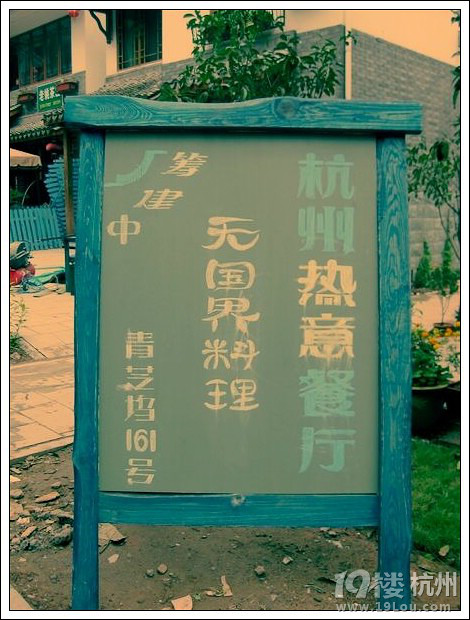 杭州热意餐厅
无国界料理
筹建中
青芝坞161号
19楼 杭州
www.19lou.com